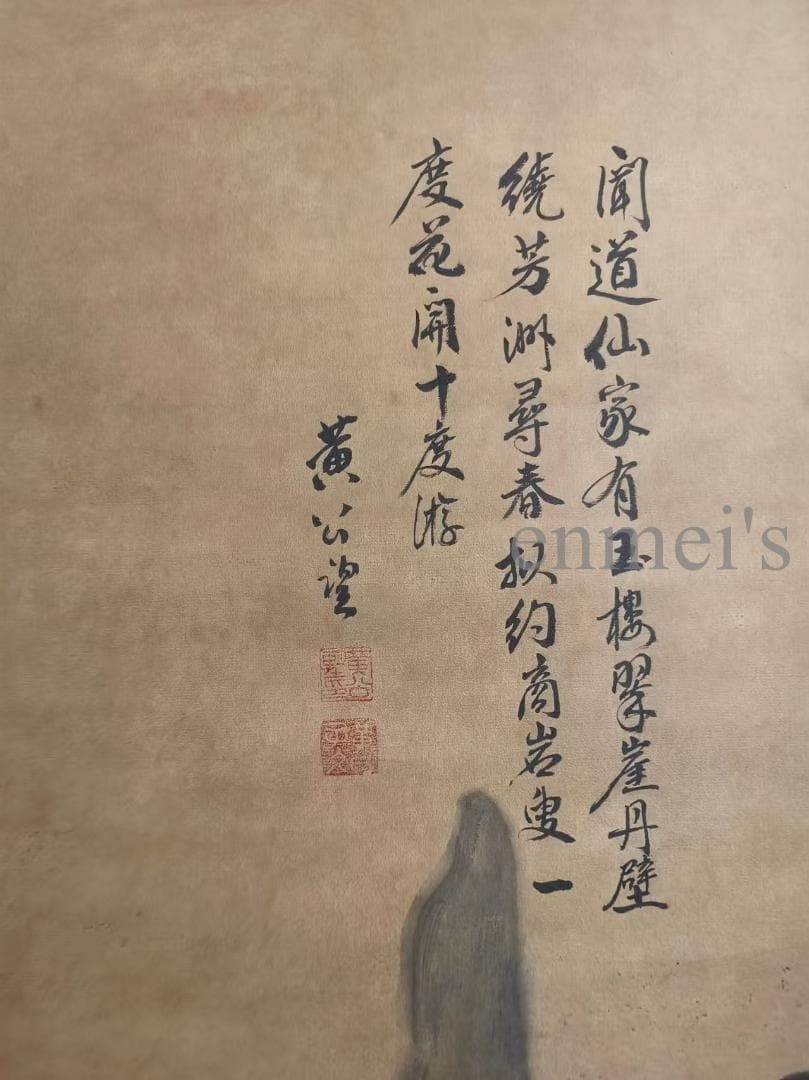 聞道仙家有玉樓翠崖丹壁
繞芳洲尋春拟約商岩叟一
度花開十度游
黃公望
enmei's